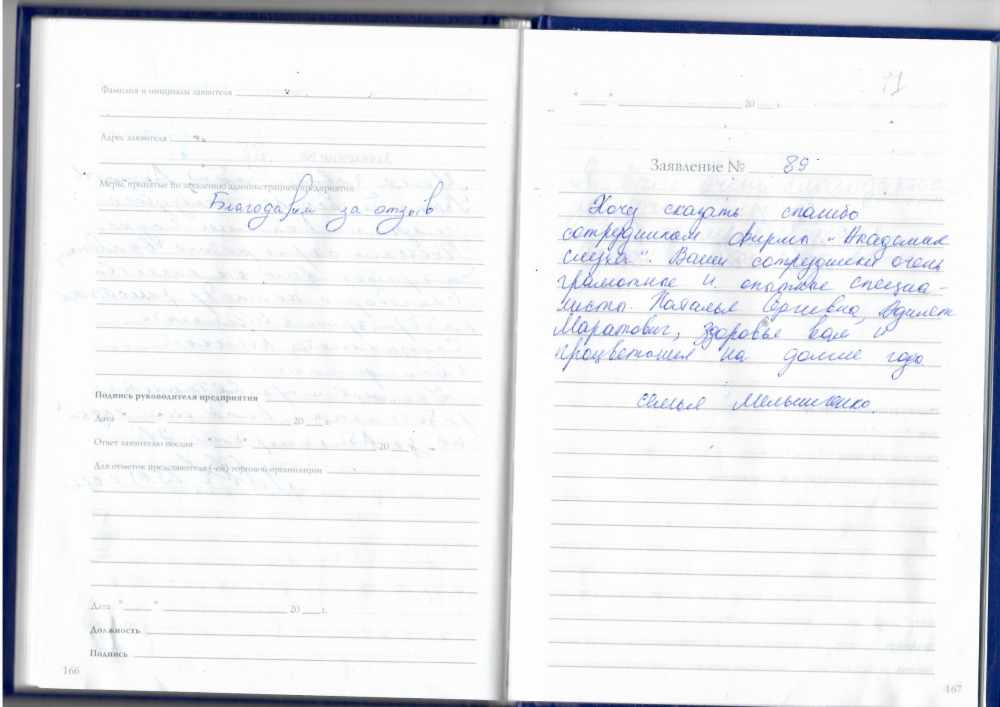 Фамилия и инициалы заявителя
Адрес заявителя
Меры, принятые по заявлению администрацией предприятия
Благодарим за отзыв
Подпись руководителя предприятия
Дата "____" ____ 20 ___
Ответ заявителю послан "____" ____ 20 ___ г.
Для отметок представителя (-ей) торговой организации
Дата "____" ____ 20 ___ г.
Должность
Подпись
166
"____" ____ 20 ___ г.
Заявление № 89
Хочу сказать спасибо
сотрудникам фирмы "Академик
". Ваши сотрудники очень
грамотные и опытные специа-
листы. Наталья Сергевна,
Маратович, Здоровье вам и
процветания на долгие года
семья Мельниченко.
167